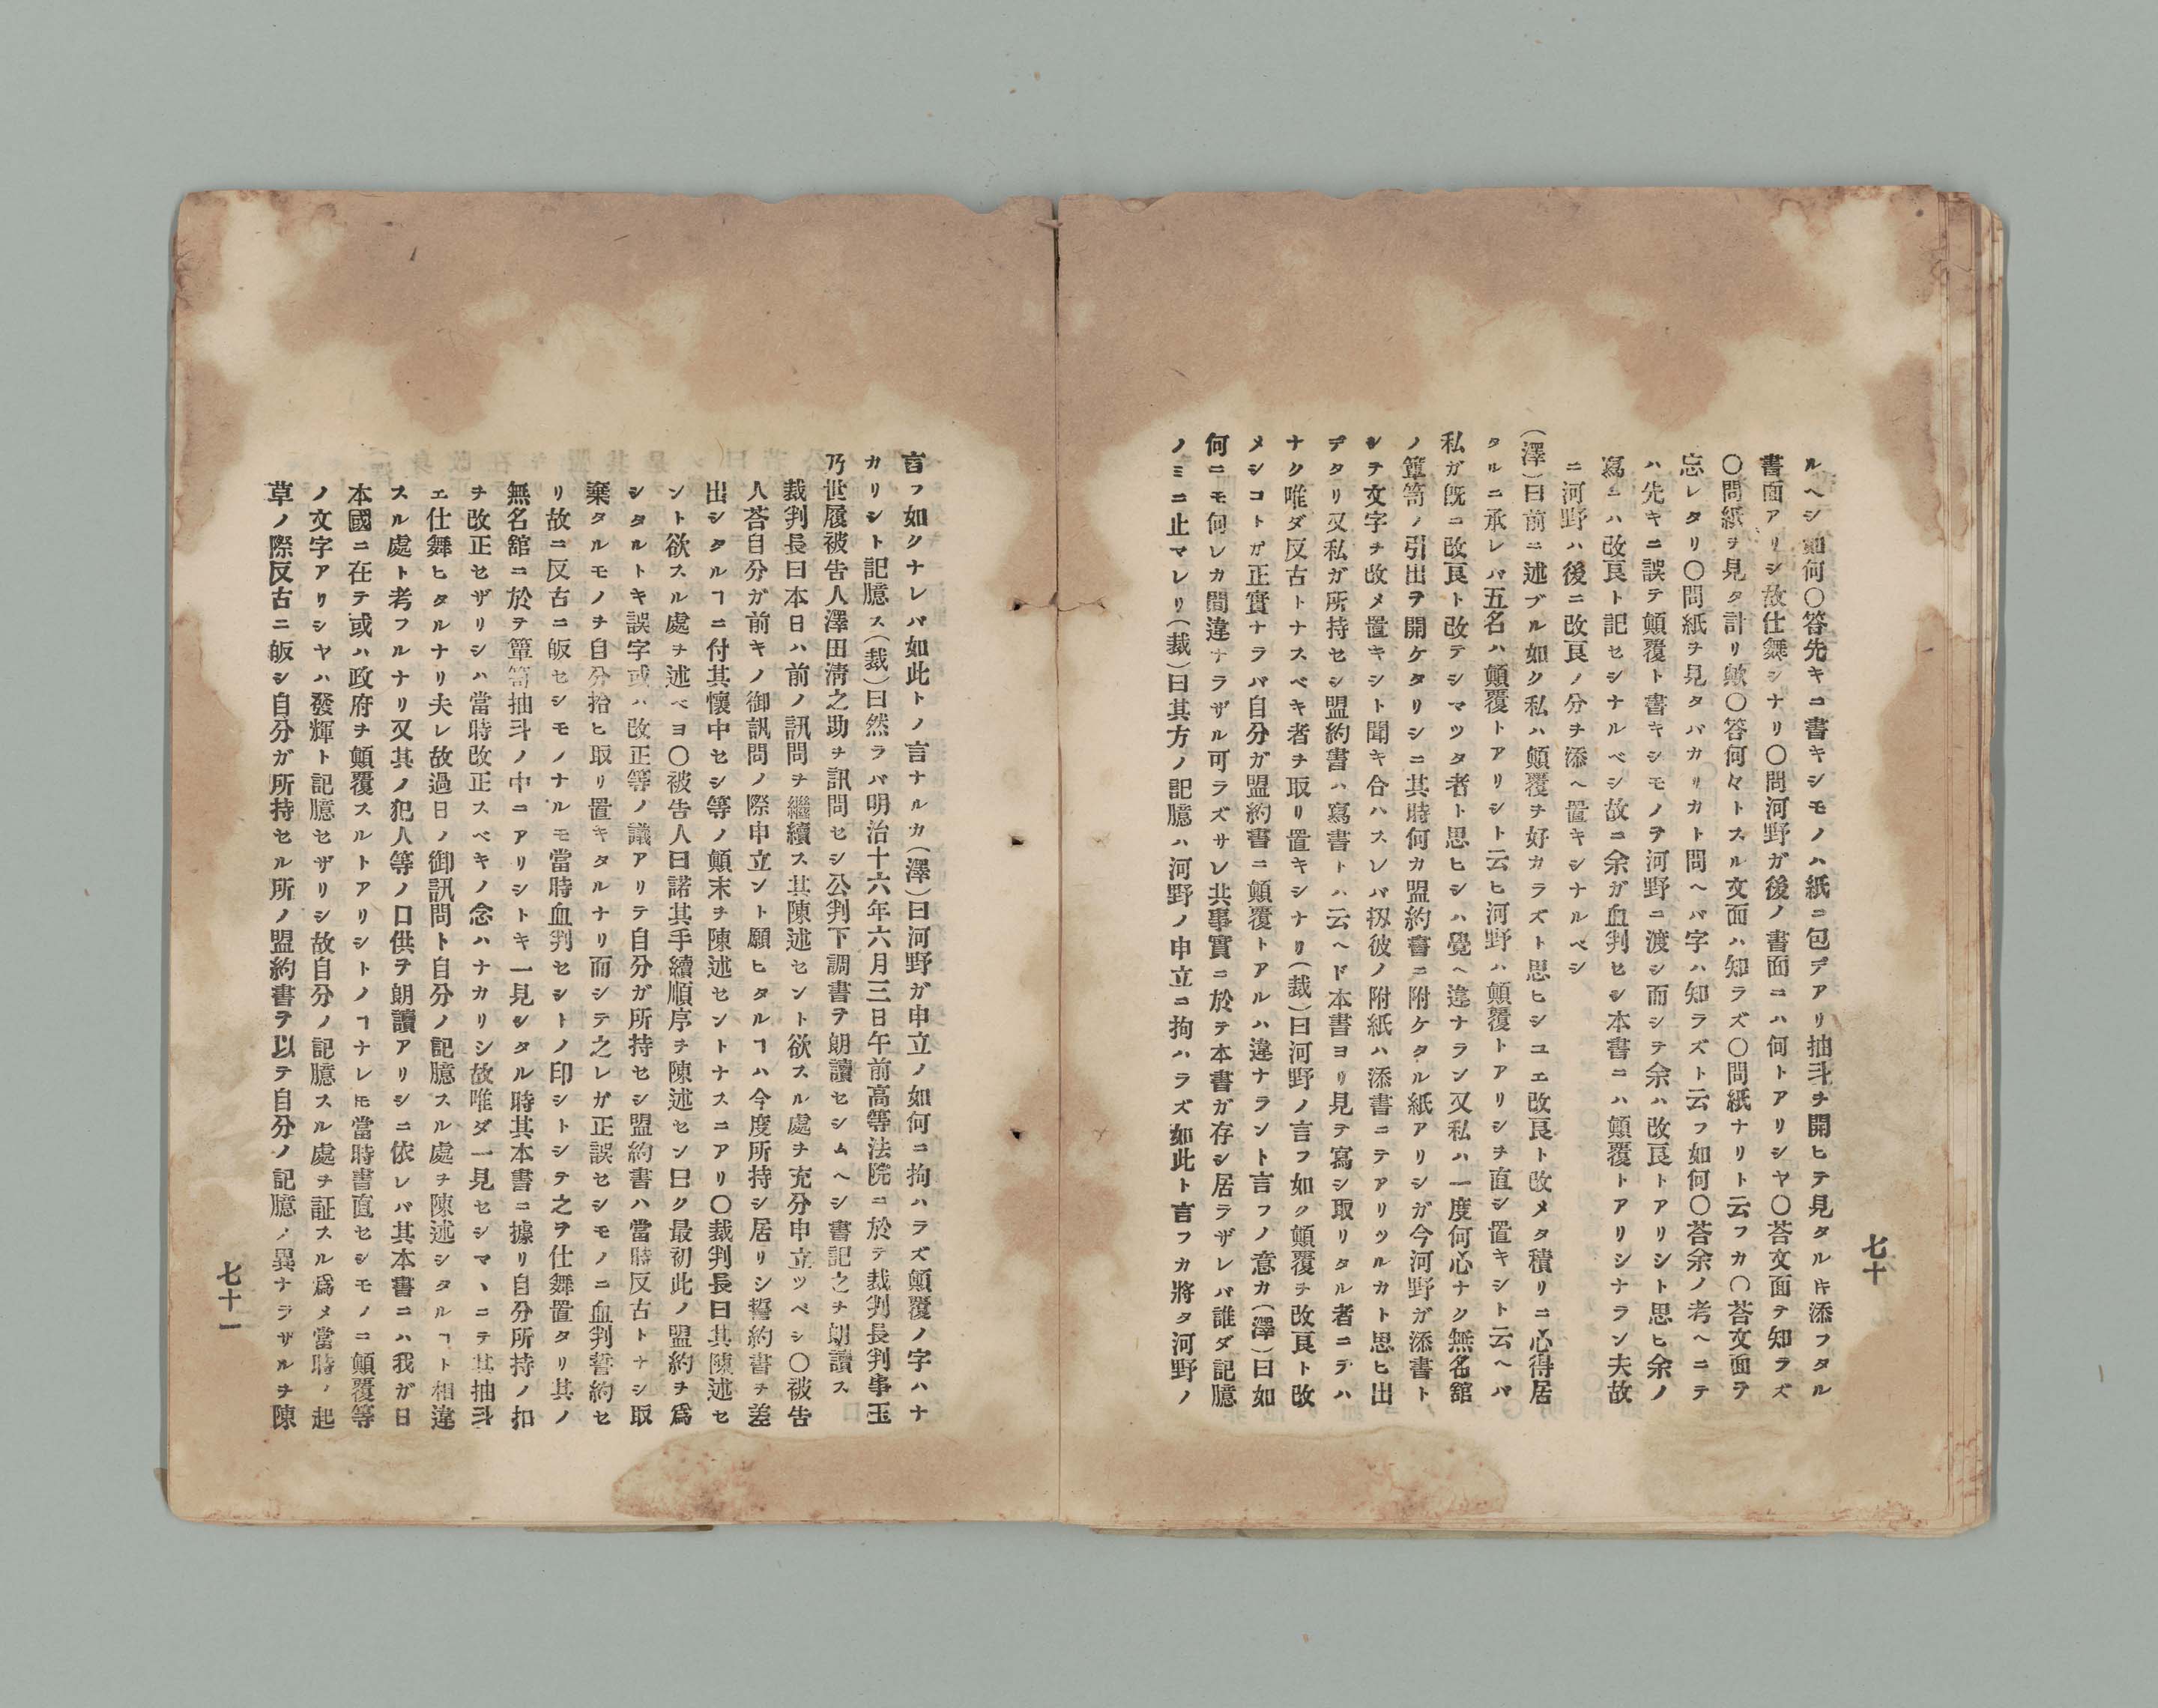 七十
ルヘシ如何〇答先キニ書キシモノハ紙ニ包デアリ抽斗ヲ開ヒテ見タル𪜈添フタル
書面アリシ故仕舞シナリ〇問河野ガ後ノ書面ニハ何トアリシヤ〇荅文面テ知ラズ
〇問紙ヲ見タ計リ歟〇答何々トスル文面ハ知ラズ〇問紙ナリト云フカ〇荅文面ヲ
忘レタリ〇問紙ヲ見タバカリカト問ヘバ字ハ知ラズト云フ如何〇荅余ノ考ヘニテ
ハ先キニ誤テ顛覆ト書キシモノヲ河野ニ渡シ而シテ余ハ改良トアリシト思ヒ余ノ
寫ニハ改良ト記セシナルベシ故ニ余ガ血判セシ本書ニハ顛覆トアリシナラン夫故
ニ河野ハ後ニ改良ノ分ヲ添ヘ置キシナルベシ
(澤)曰前ニ述ブル如ク私ハ顛覆ヲ好カラズト思ヒシユエ改良ト改メタ積リニ心得居
タルニ承レバ五名ハ顛覆トアリシト云ヒ河野ハ顛覆トアリシヲ直シ置キシト云ヘバ
私ガ既ニ改良ト改テシマツタ者ト思ヒシハ覺ヘ違ナラン又私ハ一度何心ナク無名舘
ノ簞笥ノ引出ヲ開ケタリシニ其時何カ盟約書ニ附ケタル紙アリシガ今河野ガ添書ト
シテ文字ヲ改メ置キシト聞キ合ハスレバ扨彼ノ附紙ハ添書ニテアリツルカト思ヒ出
デタリ又私ガ所持セシ盟約書ハ寫書トハ云ヘド本書ヨリ見テ寫シ取リタル者ニテハ
ナク唯ダ反古トナスベキ者ヲ取リ置キシナリ(裁)曰河野ノ言フ如ク顛覆ヲ改良ト改
メシコトガ正實ナラバ自分ガ盟約書ニ顛覆トアルハ違ナラント言フノ意カ(澤)曰如
何ニモ何レカ間違ナラザル可ラズサレ共事實ニ於テ本書ガ存シ居ラザレバ誰ダ記臆
ノミニ止マレリ(裁)曰其方ノ記臆ハ河野ノ申立ニ拘ハラズ如此ト言フカ將タ河野ノ
言フ如クナレバ如此トノ言ナルカ(澤)曰河野ガ申立ノ如何ニ拘ハラズ顛覆ノ字ハナ
カリシト記臆ス(裁)曰然ラバ明治十六年六月三日午前高等法院ニ於テ裁判長判事玉
乃世履被告人澤田淸之助ヲ訊問セシ公判下調書ヲ朗讀セシムヘシ書記之ヲ朗讀ス
裁判長曰本日ハ前ノ訊問ヲ繼續ス其陳述セント欲スル處ヲ充分申立ツベシ〇被告
人荅自分ガ前キノ御訊問ノ際申立ント願ヒタルヿハ今度所持シ居リシ誓約書ヲ差
出シタルヿニ付其懷中セシ等ノ顛末ヲ陳述セントナスニアリ〇裁判長曰其陳述セ
ント欲スル處ヲ述ベヨ〇被告人曰諾其手續順序ヲ陳述セン曰ク最初此ノ盟約ヲ爲
シタルトキ誤字或ハ改正等ノ議アリテ自分ガ所持セシ盟約書ハ當時反古トナシ取
棄タルモノヲ自分拾ヒ取リ置キタルナリ而シテ之レガ正誤セシモノニ血判誓約セ
リ故ニ反古ニ皈セシモノナルモ當時血判セシトノ印シトシテ之ヲ仕舞置タリ其ノ
無名舘ニ於テ簞笥抽斗ノ中ニアリシトキ一見シタル時其本書ニ據リ自分所持ノ扣
ヲ改正セザリシハ當時改正スベキノ念ハナカリシ故唯ダ一見セシマヽニテ其抽斗
エ仕舞ヒタルナリ夫レ故過日ノ御訊問ト自分ノ記臆スル處ヲ陳述シタルヿト相違
スル處ト考フルナリ又其ノ犯人等ノ口供ヲ朗讀アリシニ依レバ其本書ニハ我ガ日
本國ニ在テ或ハ政府ヲ顛覆スルトアリシトノヿナレ𪜈當時書直セシモノニ顛覆等
ノ文字アリシヤハ發輝ト記臆セザリシ故自分ノ記臆スル處ヲ証スル爲メ當時ノ起
草ノ際反古ニ皈シ自分ガ所持セル所ノ盟約書ヲ以テ自分ノ記臆ノ異ナラザルヲ陳
七十一